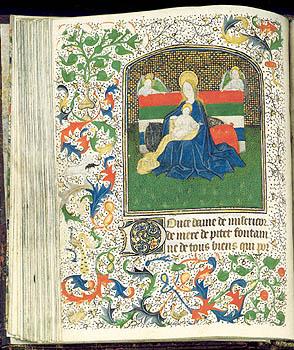 Douce dame de misericor
de mere de pitet fontai
ne de tous biens qui por